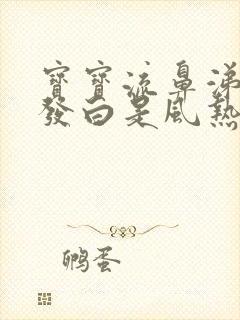 寶寶流鼻涕
發白是風熱
鵬蛋